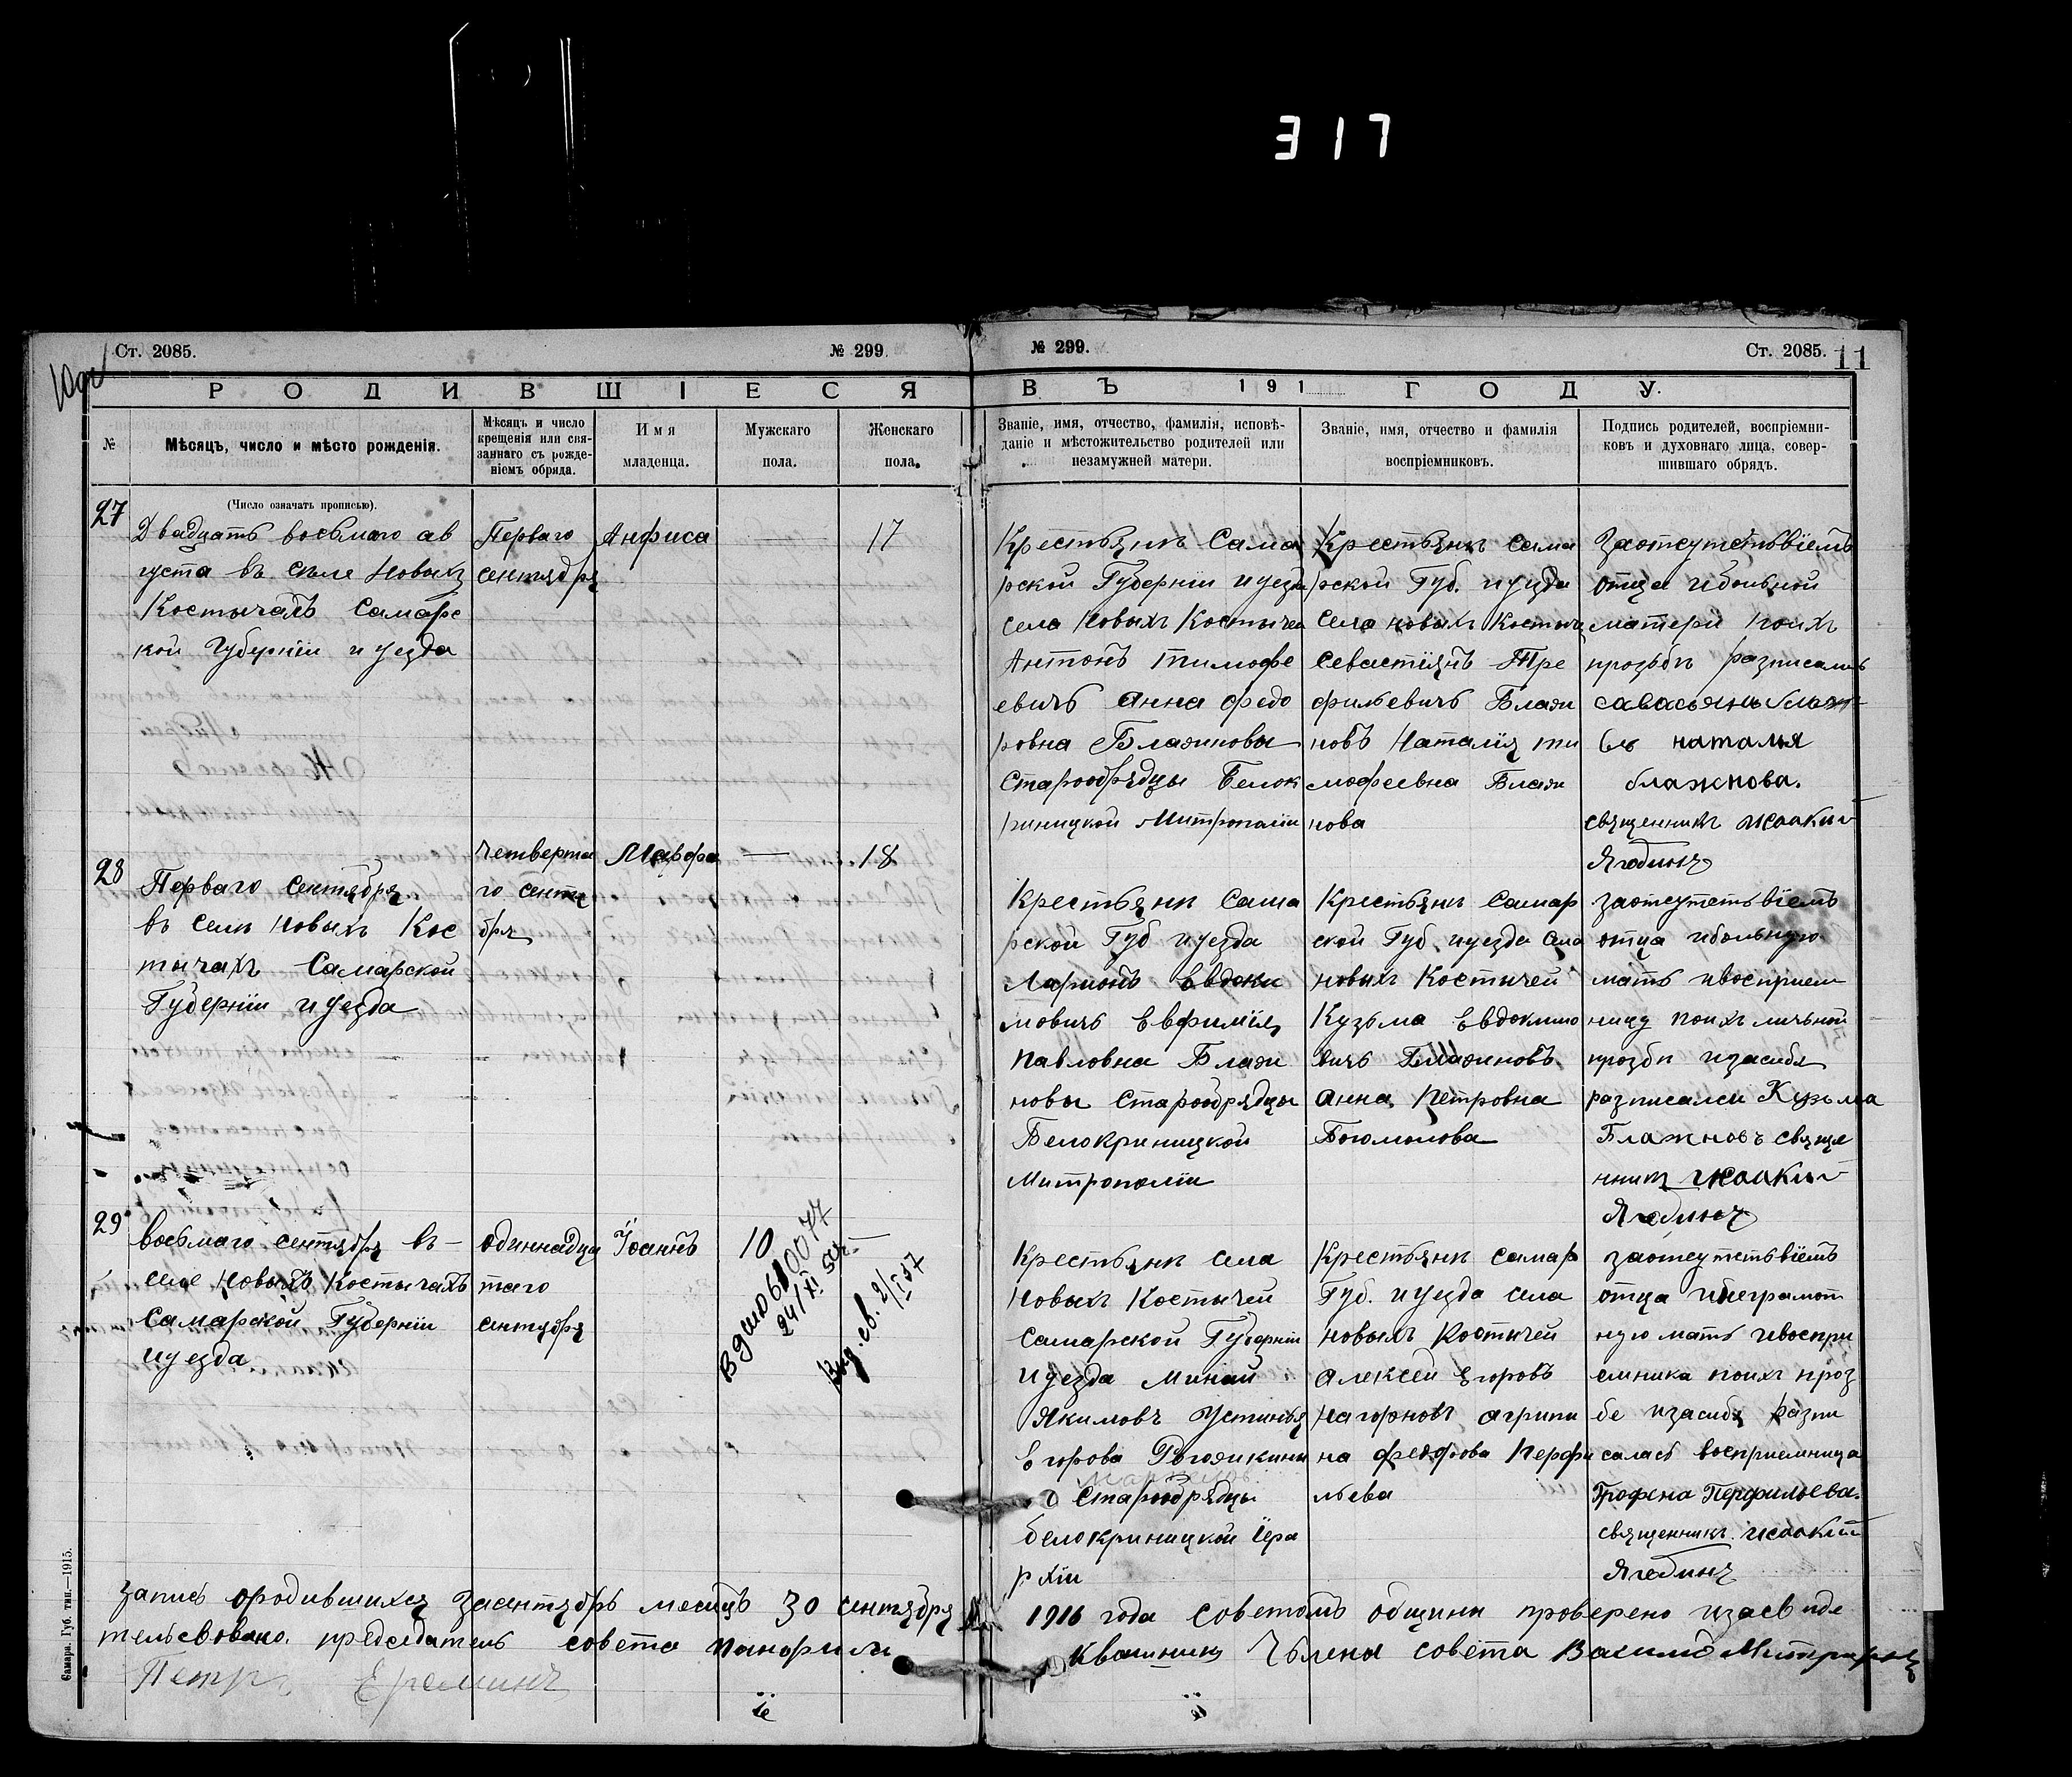 317
Ст. 2085.
№ 299.
№ 299.
Ст. 2085.
11
РОДИВШІЕСЯ
ВЪ 191 ГОДУ.
№
Мѣсяцъ, число и мѣсто рожденія.
Мѣсяцъ и число
крещенія или свя-
заннаго съ рожде-
ніемъ обряда.
Имя
младенца.
Мужскаго
пола.
Женскаго
пола.
Званіе, имя, отчество, фамилія, исповѣ-
даніе и мѣстожительство родителей или
незамужней матери.
Званіе, имя, отчество и фамилія
воспріемниковъ.
Подпись родителей, воспріемни-
ковъ и духовнаго лица, совер-
шившаго обрядъ.
(Число означать прописью).
27
Двадцать восьмаго ав
густа въ селе Новыхъ
Костычахъ Самарс
кой Губерніи и уезда
Перваго
сентября
Анфиса
17
Крестьяне Сама
рской Губерніи и уезда
села Новыхъ Костычей
Антонъ Тимофе
евичъ Анна Федо
ровна Блажновы
Старообрядцы Белок
риницкой Митрополіи
Крестьяне Сама
рской Губ. и уезда
села новыхъ Костыч
Севастіянъ Тре
фильевичъ Блажи
новъ Наталія Ти
мофеевна Блажи
нова
Заотсутствіемъ
отца ибольной
матери поихъ
прозьбе разписались
наталья
блажнова.
священникъ Исакий
Ягодинъ
28
Перваго Сентября
въ селе Новыхъ Кос
тычахъ Самарской
Губерніи и уезда
Четверта
го сентя
бря
Марфа
18
Крестьяне Сама
рской Губ и уезда
Ларионъ Евдоки
мовичъ Евфимія
Павловна Блажи
новы Старообрядцы
Белокриницкой
Митрополіи
Крестьяне Самар
ской Губ. и уезда села
новыхъ Костычей
Кузьма Евдокимо
вичъ Блажиновъ
Анна Петровна
Богомолова
заотсутствіемъ
отца ибольную
мать ивосприем
ницу поихъ личьной
прозбе изасибя
разписался Кузьма
Блажновъ свяще
нникъ Исакий
Ягодинъ
29
Восьмаго сентября въ
селе Новыхъ Костычахъ
Самарской Губерніи
и уезда
Одиннадца
таго
сентября
Іоаннъ
10
24/XI 54г.
Выд. св. 2/I 57
Крестьяне села
Новыхъ Костычей
Самарской Губерніи
и уезда Минай
Якимовъ Устинья
Егорова
Старообрядцы
белокриницкой іера
рхіи
Крестьяне Самар
Губ. и уезда села
новыхъ Костычей
Алексей Егоровъ
Нагорновъ Агрипи
на федорова Перфи
льева
заотсутствіемъ
отца инеграмот
ную мать ивоспри
емника поихъ проз
бе изасибя разпи
салась восприемница
Грофена Перфильева.
священникъ Исакий
Ягодинъ
запись ородившихся засентябрь месяцъ 30 сентября 1916 года советомъ общины проверено изасвиде
тельсвовано. председатель совета Панфилъ Квашнинъ Члены совета
Петръ Ереминъ
Самара. Губ. тип.—1915.